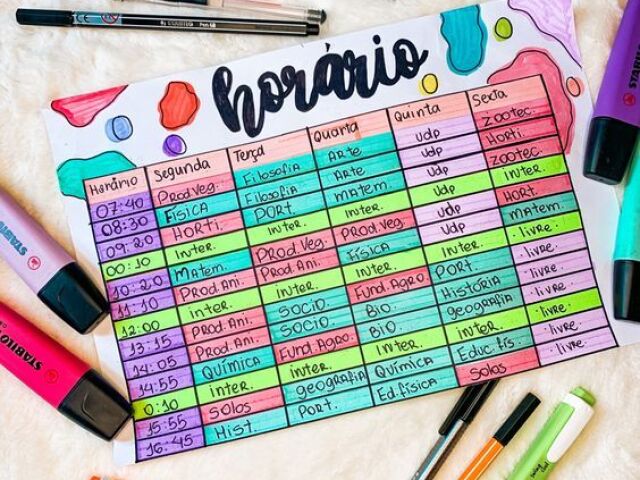 horário
Horário Segunda Terça Quarta Quinta Sexta
07:40 Prod.Veg. Filosofia Arte Udp Zootec.
08:30 Física Filosofia Arte Udp Horti.
09:20 Horti. Port. Matem. Udp Zootec.
00:10 Inter. Inter. Inter. Inter. Inter.
10:20 Matem. Prod.Veg. Prod.Veg. Udp Hort.
11:10 Prod.Ani. Prod.Ani. Física Udp Matem.
12:00 Inter. Inter. Inter. Inter. .livre.
13:15 Prod.Ani. Socio. Fund.Agro Port. .livre.
14:05 Prod.Ani. Socio. Bio. História .livre.
14:55 Química Fund.Agro Bio. geografia .livre.
0:10 Inter. Inter. Inter. Inter. .livre.
15:55 Solos geografia Química Educ.fís. .livre.
16:45 Hist. Port. Ed.física Solos .livre.
STABILO
STABILO